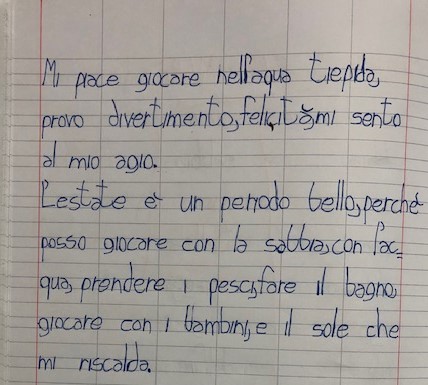 Mi piace giocare nell'aqua tiepida,
provo divertimento, felicità, mi sento
al mio agio.
L'estate è un periodo bello, perché
posso giocare con la sabbia, con l'ac=
qua, prendere i pesci, fare il bagno,
giocare con i bambini, e il sole che
mi riscalda.